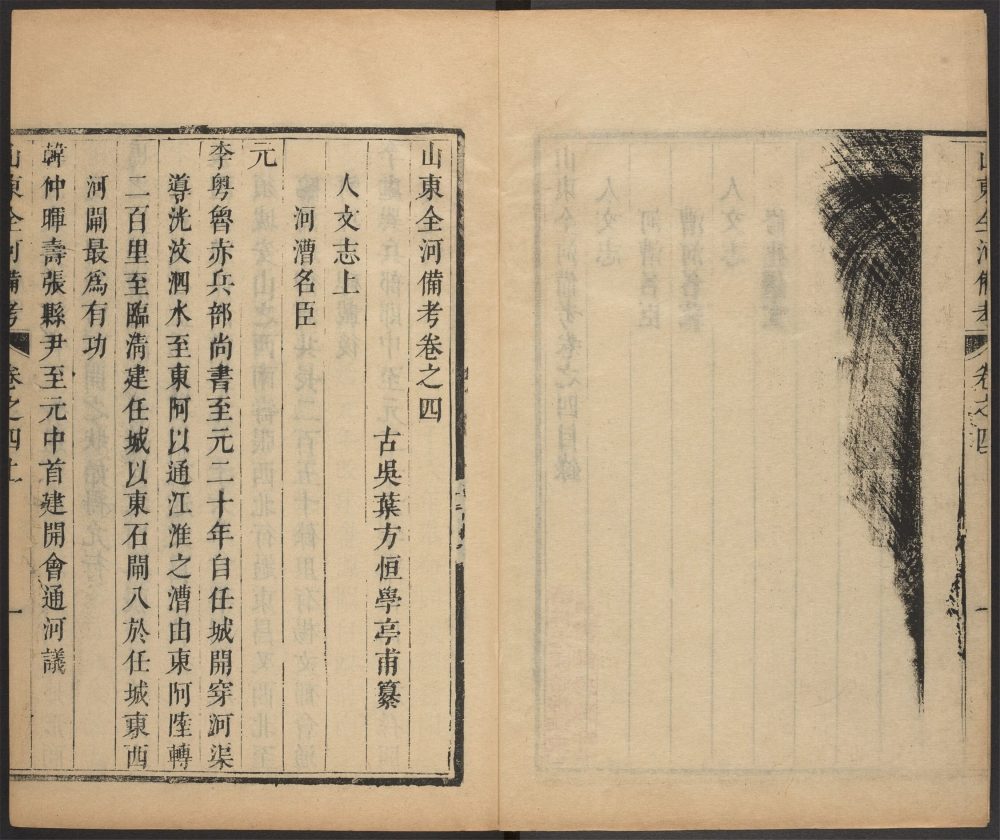 山東全河備考
卷之四
山東全河備考卷之四
古吳葉方恒學亭甫纂
人文志上
河漕名臣
元
李粤魯赤兵部尚書至元二十年自任城開穿河渠
導洸汶泗水至東阿以通江淮之漕由東阿陸轉
二百里至臨清建任城以東石閘八於任城東西
河閘最爲有功
韓仲暉壽張縣尹至元中首建開會通河議
山東全河備考
卷之四上
一